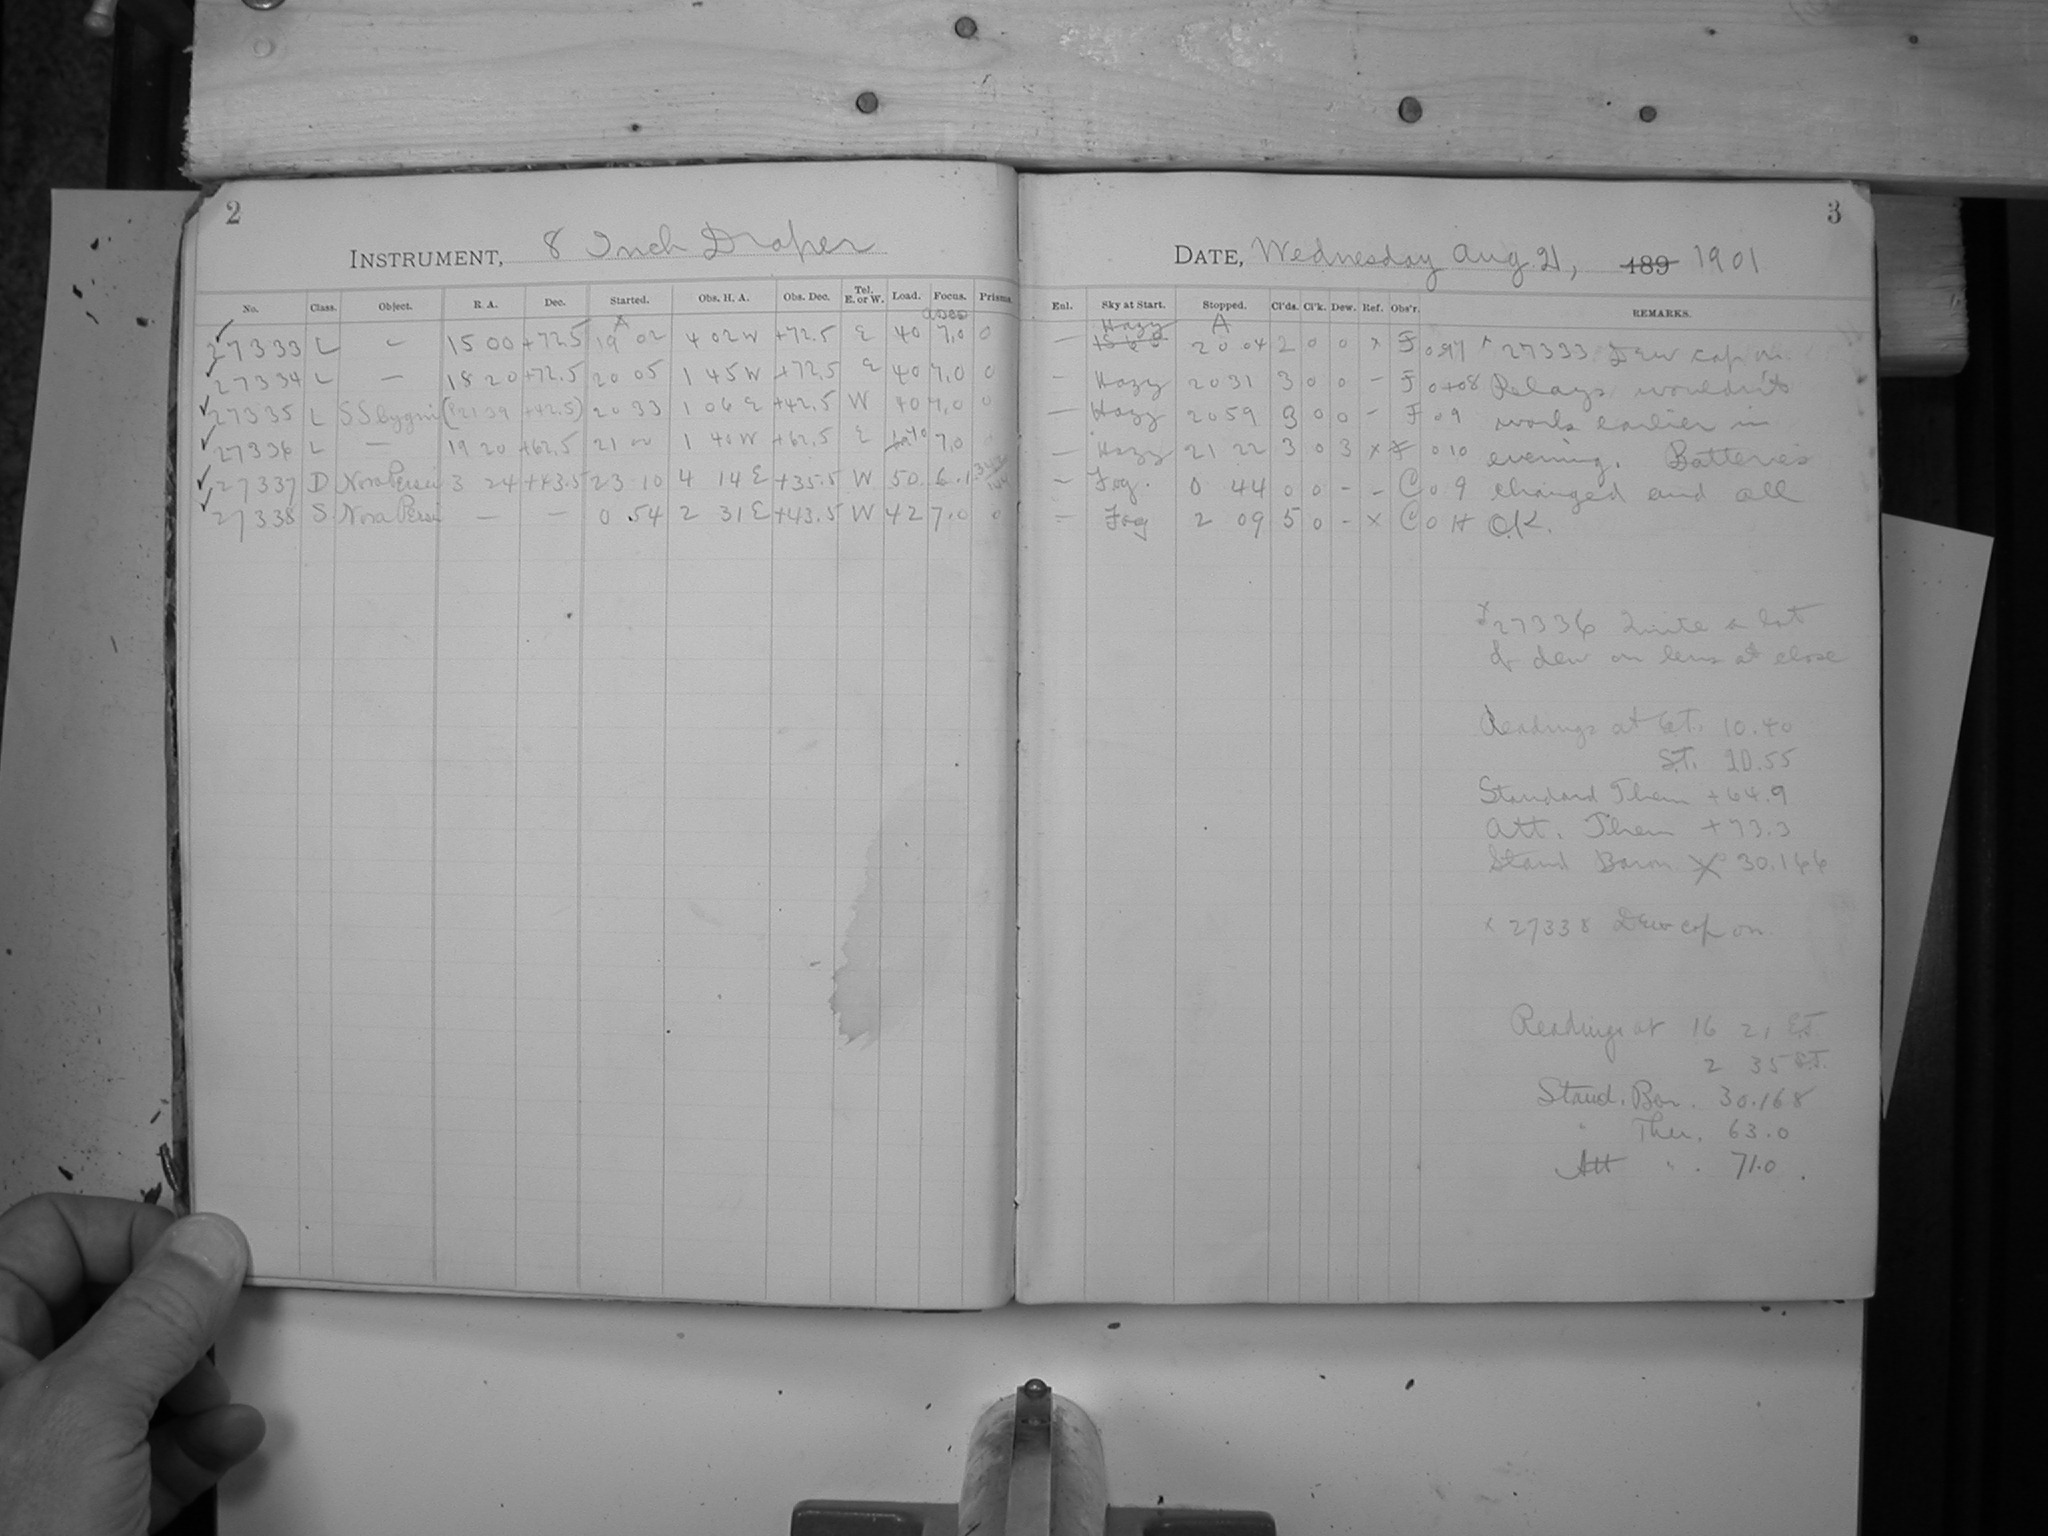 2
INSTRUMENT, 8 Inch Draper
No. Class. Object. R. A. Dec. Started. Obs. H. A. Obs. Dec. Tel. E. or W. Load. Focus. Prisms.
27333 L 15 00 +72.5 19 02 4 02 W +72.5 E 40 7.0 0
27334 L — 18 20 +72.5 20 05 1 45 W +72.5 E 40 7.0 0
27335 L SS Cygni (21 39 +42.5) 20 33 1 06 E +42.5 W 40 7.0 0
27336 L — 19 20 +62.5 21 00 1 40 W +62.5 E 7.0
27337 D Nova Persei 3 24 +43.5 23 10 4 14 E +35.5 W 50 6.1
27338 S Nova Persei — — 0 54 2 31 E +43.5 W 42 7.0 0
3
DATE, Wednesday Aug. 21, 189 1901
Enl. Sky at Start. Stopped. Cl'ds. Cl'k. Dew. Ref. Obs'r. REMARKS.
— Hazy A 20 04 2 0 0 x F x 27333 Dew cap on.
— Hazy 20 31 3 0 0 – F Relays wouldn't
— Hazy 20 59 3 0 0 – F 0 9 work earlier in
— Hazy 21 22 3 0 3 x F 0 10 evening. Batteries
— Fog. 0 44 0 0 – – C 0 9 changed and all
Fog 2 09 5 0 – x C 0 H O.K.
x 27336 Quite a lot
of dew on lens at close
Readings at E.T. 10.40
S.T. 20.55
Standard Them +64.9
Att. Them +73.3
Stand Barom 30.166
x 27338 Dew cap on.
Readings at 16 21 E.T.
2 35 S.T.
Stand. Bar. 30.168
" Ther. 63.0
Att " 71.0